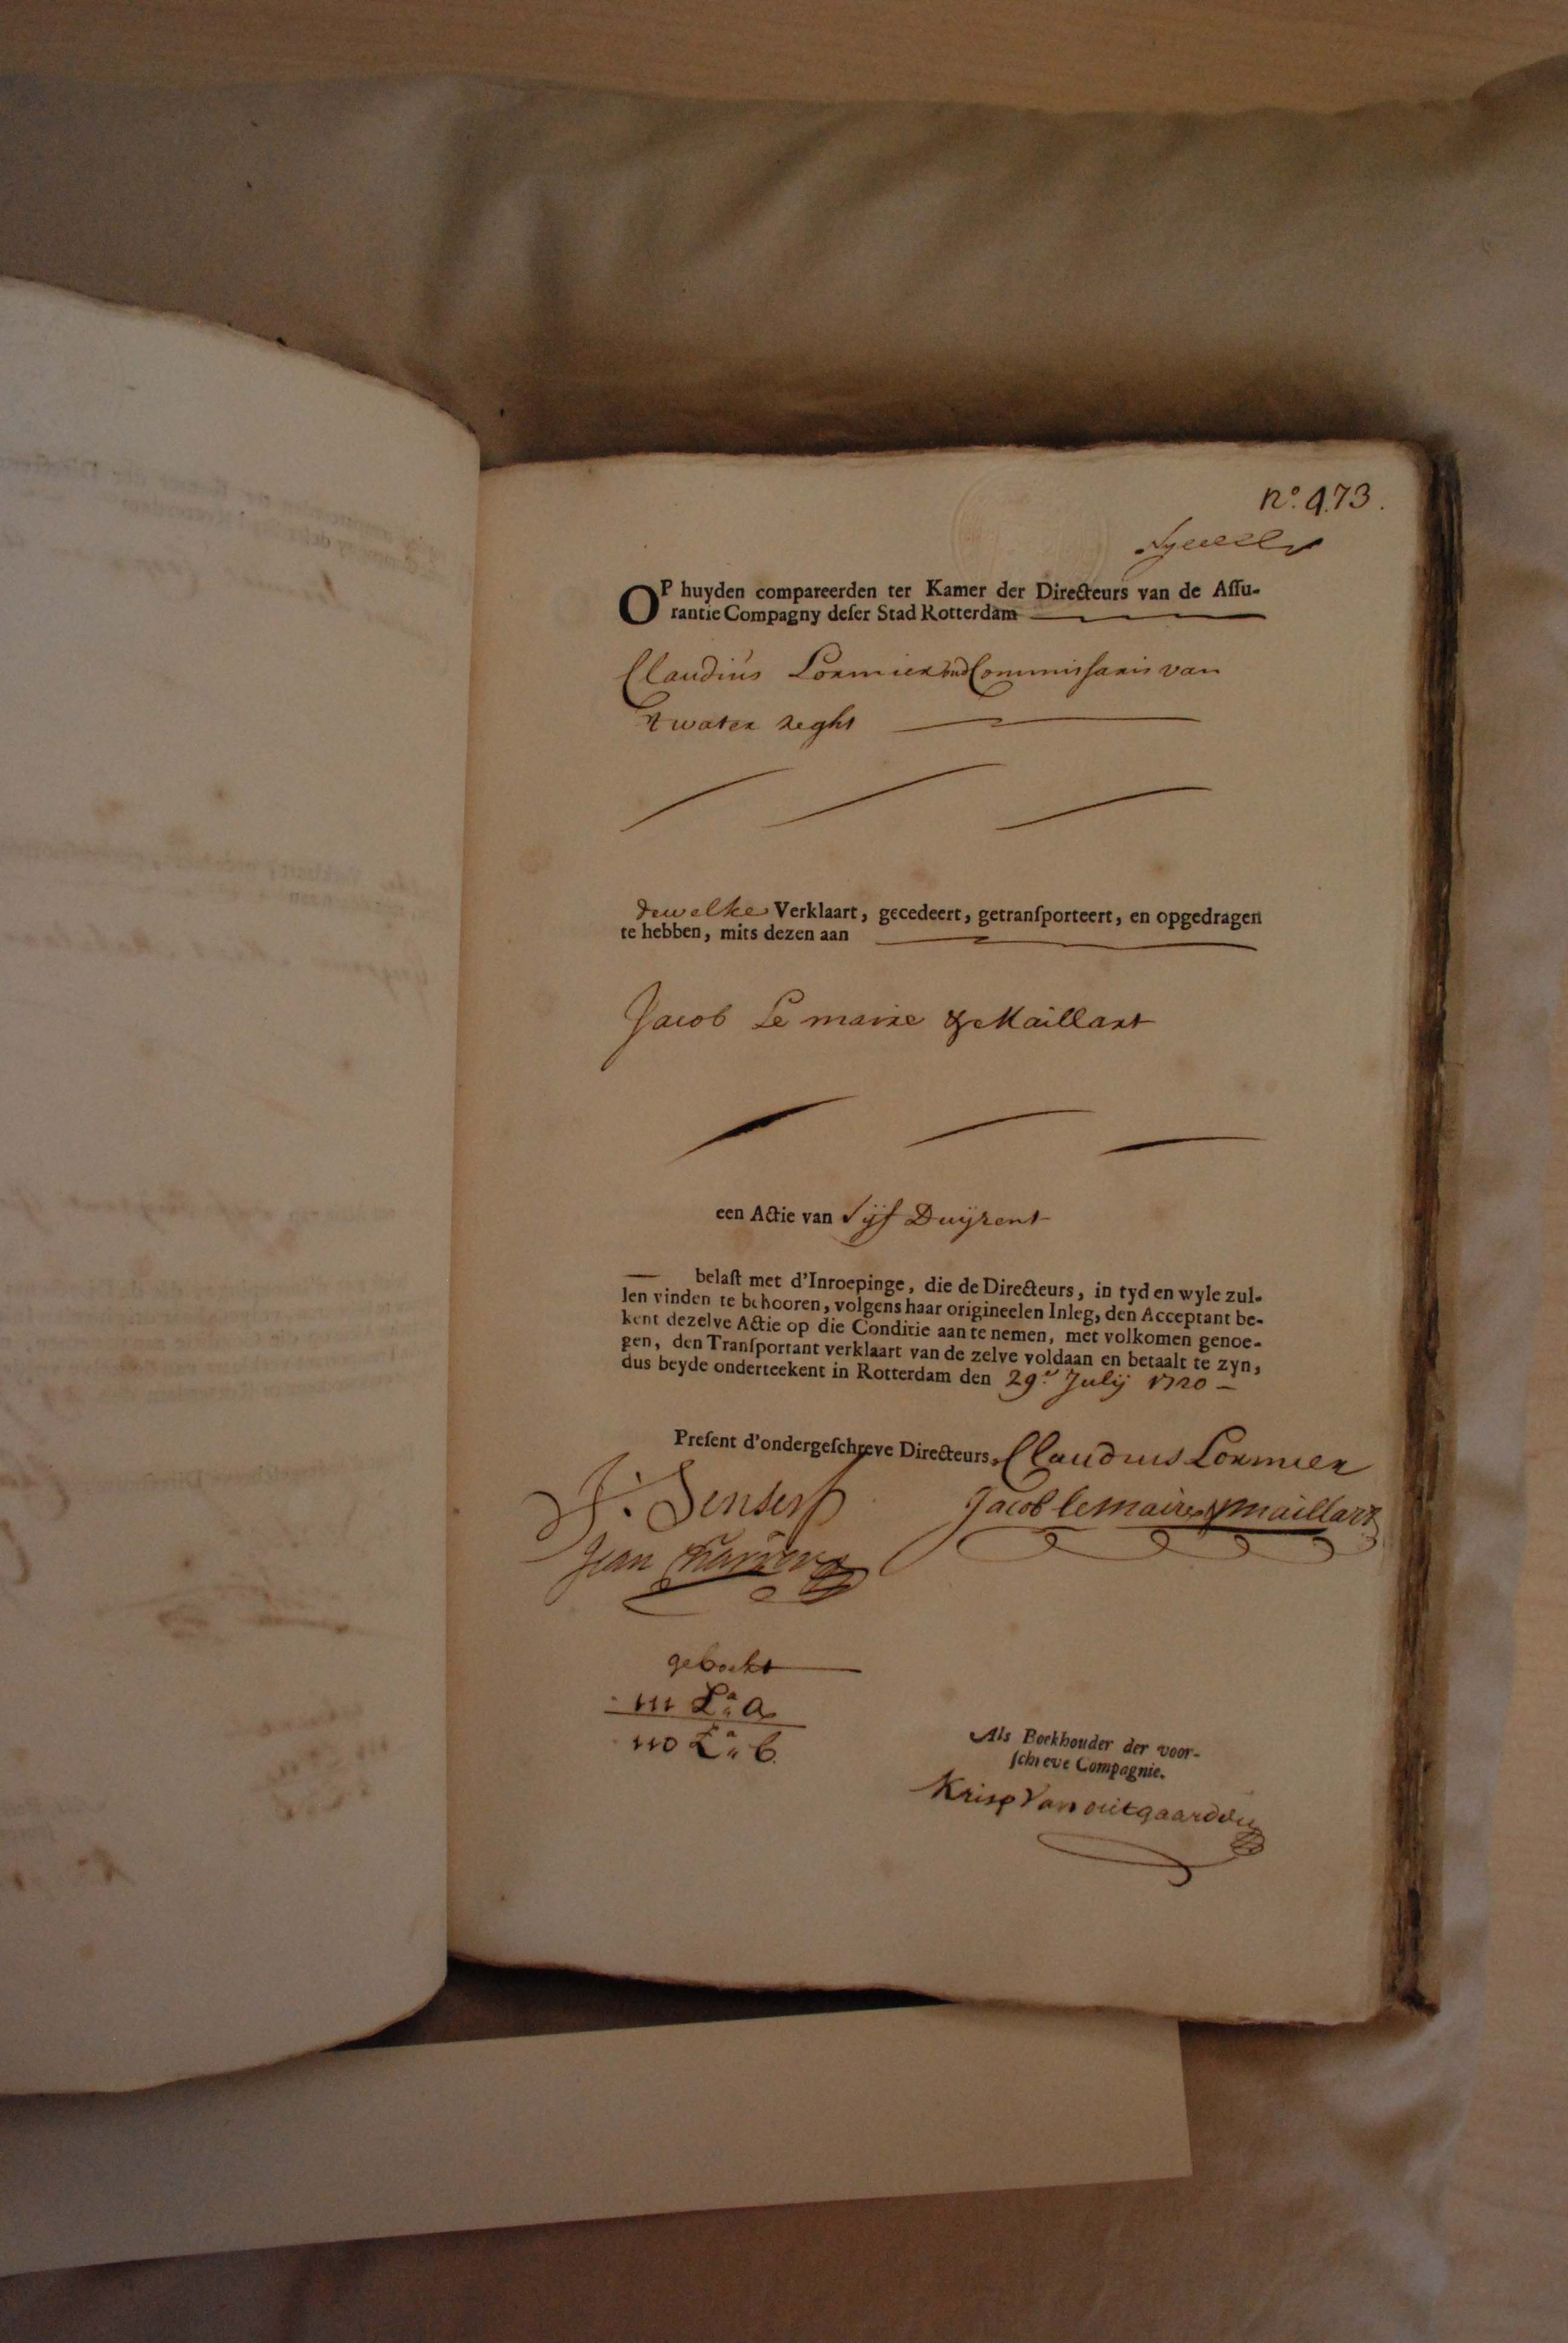 no. 973.
OP huyden compareerden ter Kamer der Directeurs van de Assu-
rantie Compagny deser Stad Rotterdam
Claudius Lormier oud Commissaris van
't water reght
dewelke Verklaart, gecedeert, getransporteert, en opgedragen
te hebben, mits dezen aan
Jacob Le maire & Maillart
een Actie van Vijf Duijzent
belast met d'Inroepinge, die de Directeurs, in tyd en wyle zul-
len vinden te behooren, volgens haar origineelen Inleg, den Acceptant be-
kent dezelve Actie op die Conditie aan te nemen, met volkomen genoe-
gen, den Transportant verklaart van de zelve voldaan en betaalt te zyn,
dus beyde onderteekent in Rotterdam den 29e Julij 1720
Present d'ondergeschreve Directeurs. Claudius Lormier
J: Senserf
Jacob le maire & maillart
Jean
geboekt
111 La: a
110 La: b.
Als Boekhouder der voor-
schreve Compagnie.
Krisp Van outgaarden